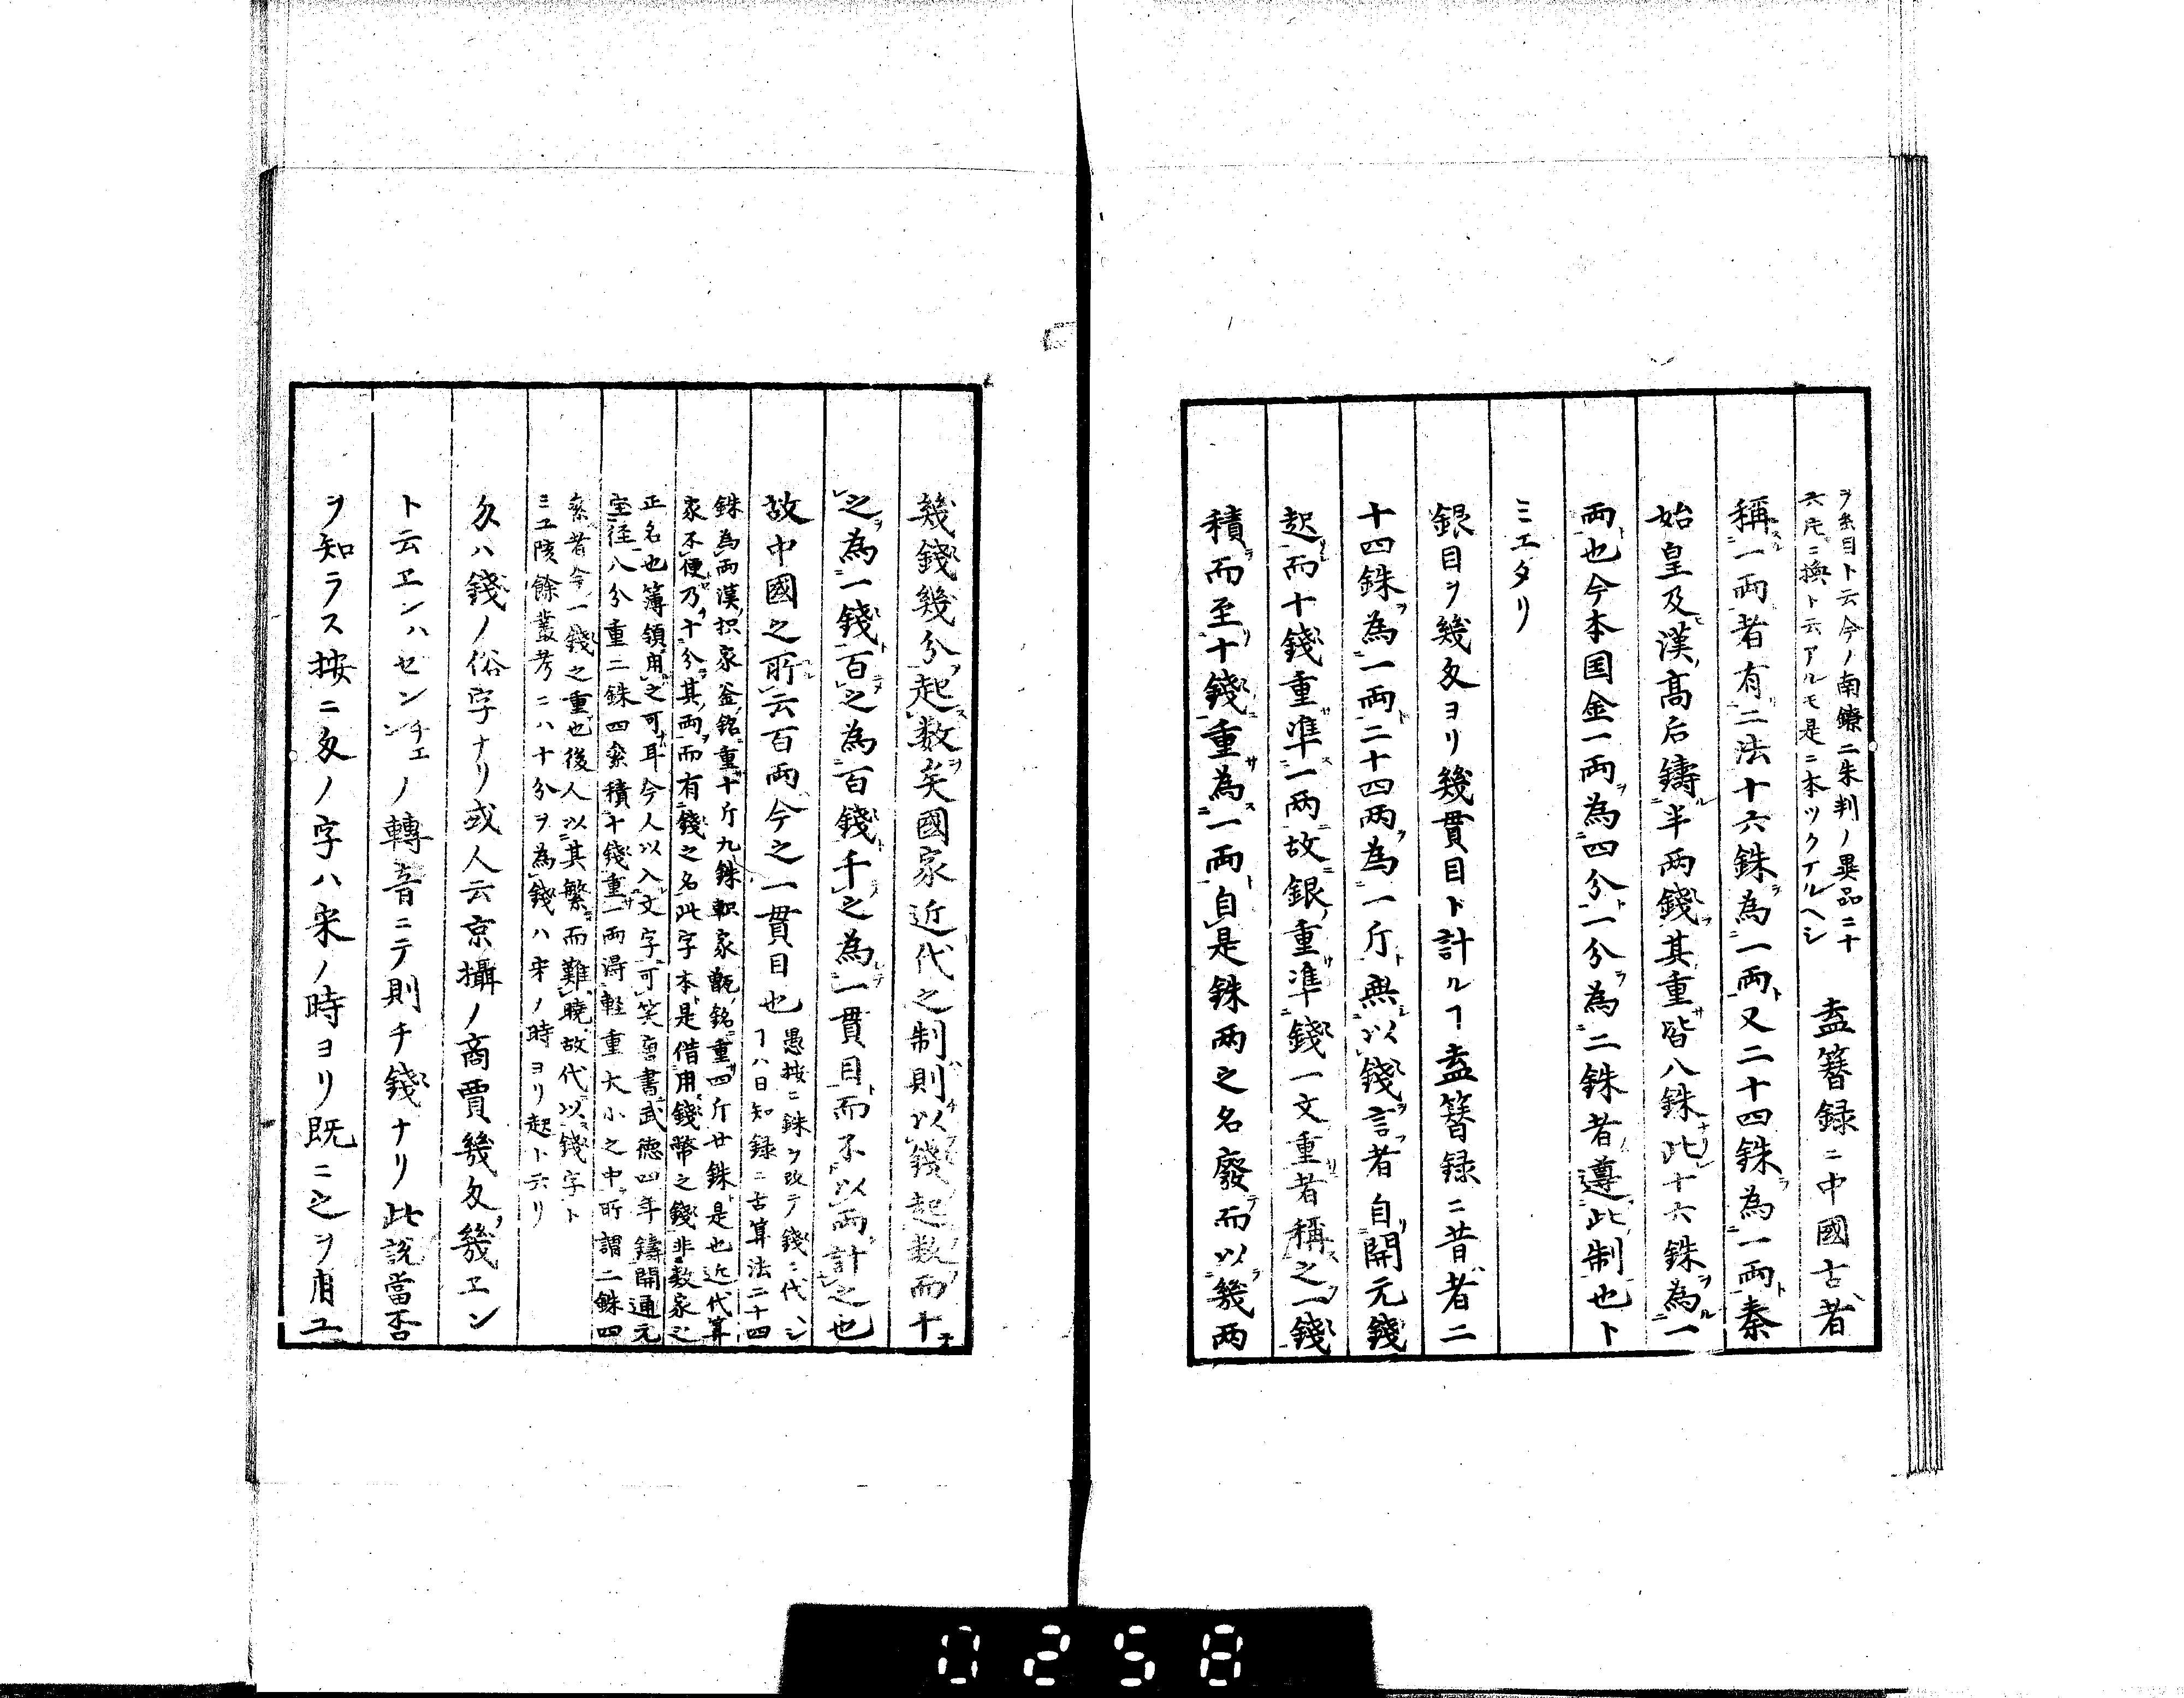 ヲ糸目ト云今ノ南鐐二朱判ノ異品ニ十
六片ニ換ト云アルモ是ニ本ツクナルヘシ
盍簪録ニ中國古者
稱一兩者有二法十六銖為一兩又二十四銖為一兩秦
始皇及漢高后鑄半兩錢其重皆八銖此十六銖為一
兩也今本国金一兩為四分一分為二銖者遵此制也ト
ミエタリ
銀目ヲ幾匁ヨリ幾貫目ト計ルヿ盍簪録ニ昔者二
十四銖為一兩二十四兩為一斤無以錢言者自開元錢
起而十錢重準一兩故銀重準錢一文重者稱之一錢
積而至十錢重為一兩自是銖兩之名廢而以幾兩
幾錢幾分起数矣國家近代之制則以錢起数而十
之為一錢百之為百錢千之為一貫目而不以兩計之也
故中國之所云百兩今之一貫目也
愚按ニ銖ヲ改テ錢ニ代シ
ヿハ日知録ニ古算法二十四
銖為兩漢軹家釜銘重十斤九銖軹家甑銘重四斤廿銖是也近代算
家不便乃十分其兩而有錢之名此字本是借用錢幣之錢非数家之
正名也簿領用之可耳今人以入文字可笑唐書武德四年鑄開通元
宝径八分重二銖四絫積十錢重一兩得輕重大小之中所謂二銖四
絫者今一錢之重也後人以其繁而難曉故代以錢字ト
ミユ陔餘叢考ニハ十分ヲ為錢ハ宋ノ時ヨリ起ト云リ
匁ハ錢ノ俗字ナリ或人云京攝ノ商賈幾匁幾ヱン
ト云ヱンハセンチエンノ轉音ニテ則チ錢ナリ此説當否
ヲ知ラス按ニ匁ノ字ハ宋ノ時ヨリ既ニ之ヲ用ユ
0258